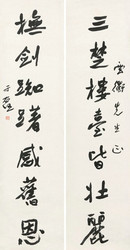 三楚樓臺皆壯麗
先生正
撫劍踟躇感舊恩
于右任